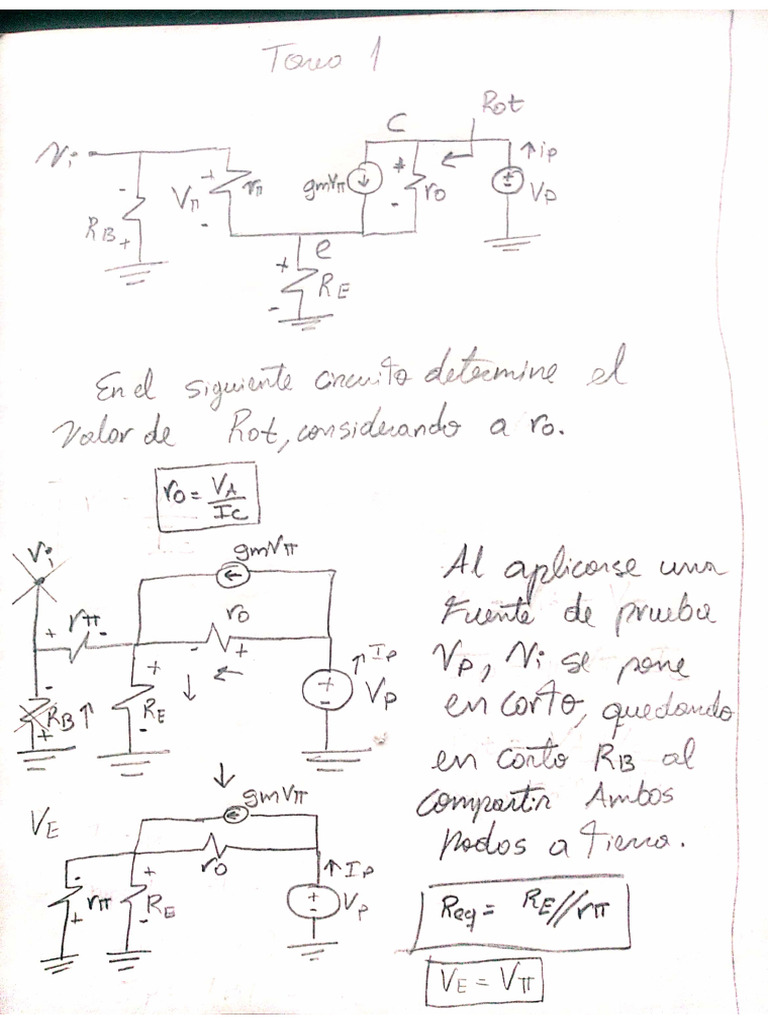 Tarea 1
Rot
C
Vi
+
Vπ
rπ
-
gmVπ
+
ro
-
↑ip
+
-
Vp
-
RB
+
e
+
RE
-
En el siguiente circuito determine el
Valor de Rot, considerando a ro.
ro = VA
Ic
Vi
gmVπ
+ rπ -
ro
- +
-
RB ↑
+
+
RE
-
+
-
↑ Ip
Vp
Al aplicarse una
Fuente de prueba
Vp, Vi se pone
en corto, quedando
en corto RB al
compartir Ambos
Nodos a tierra.
VE
gmVπ
ro
-
rπ
+
+
RE
-
↑ Ip
+
-
Vp
Req = RE//rπ
VE = Vπ